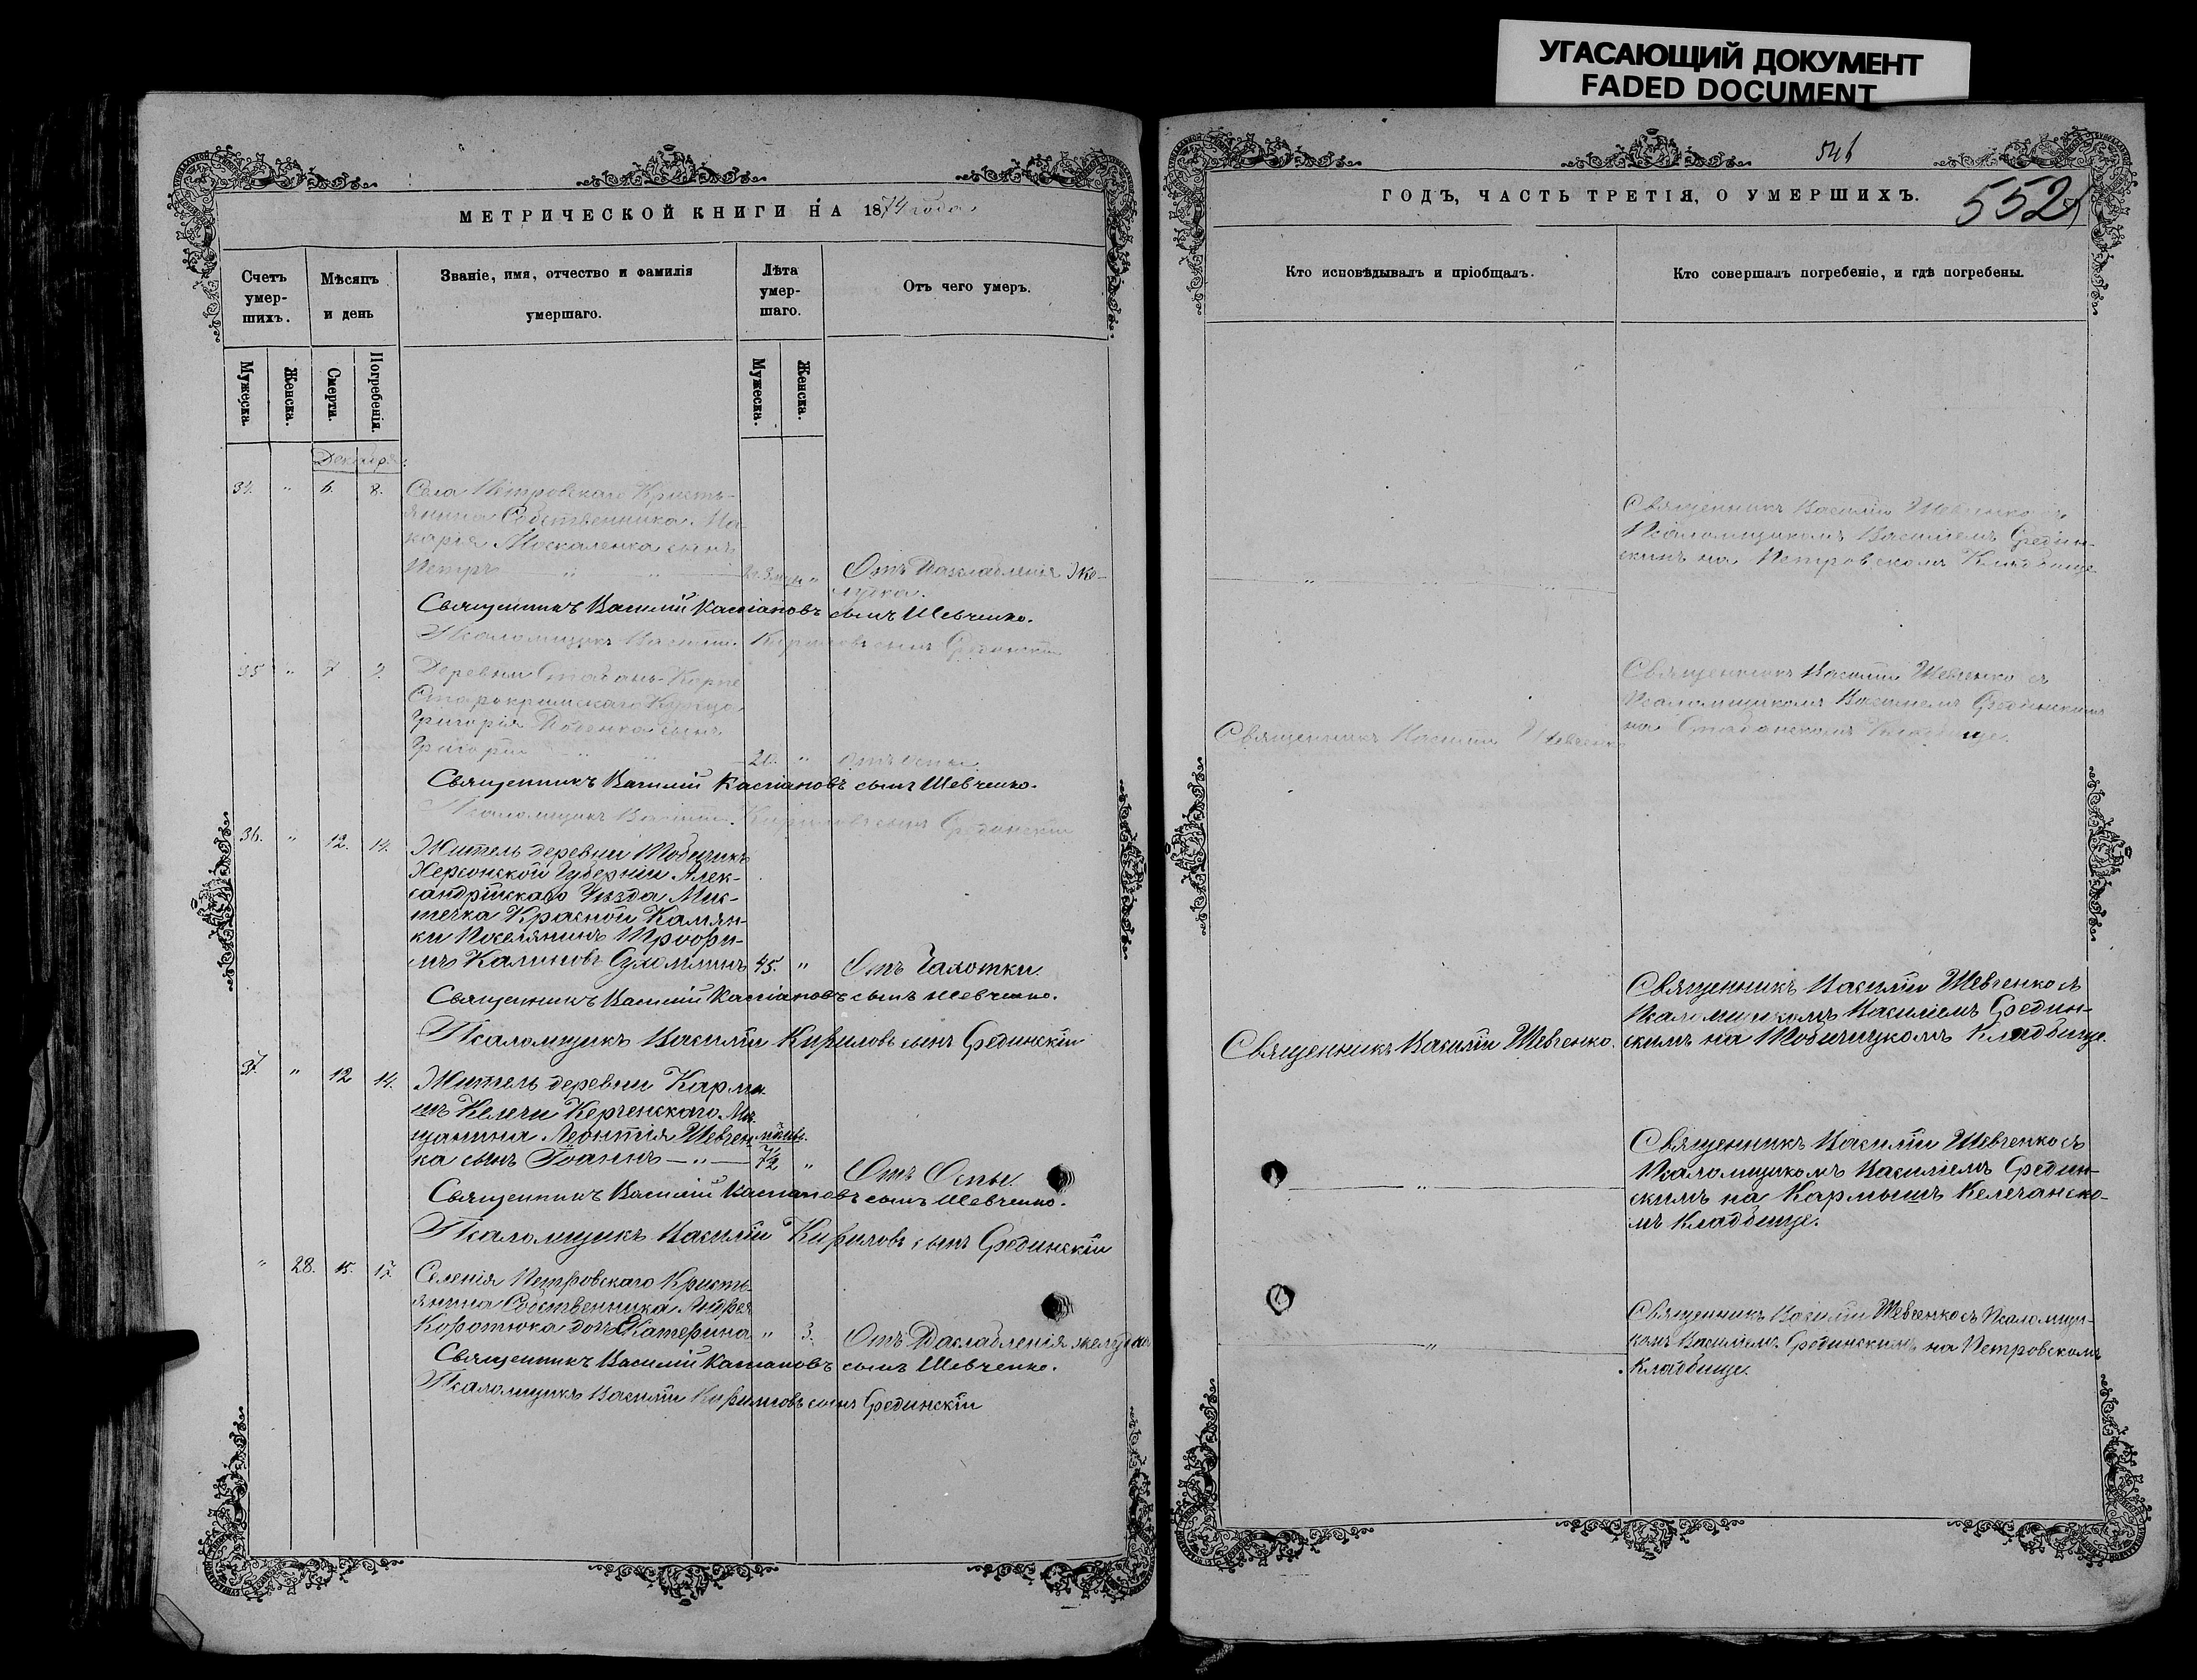 УГАСАЮЩИЙ ДОКУМЕНТ
FADED DOCUMENT
МЕТРИЧЕСКОЙ КНИГИ НА 1874 года.
Счетъ умер-шихъ.
Мѣсяцъ и день
Званіе, имя, отчество и фамилія умершаго.
Лѣта умер-шаго.
Отъ чего умеръ.
Мужеска.
Женска.
Смерти.
Погребенія.
Мужеска.
Женска.
Декабря
34. " 6. 8. Села Петровскаго Кресть-
янина Собственника Ма-
карія Москаленка сынъ
Петръ " " Отъ Разслабленія же-
лудка.
Священникъ Василій Кассіановъ сынъ Шевченко.
Псаломщикъ Василій Кириловъ сынъ Срединскій
35 " 7 9. Деревни
Старокримскаго Купца
Григорія сынъ
Григорій 20. " отъ оспы.
Священникъ Василій Кассіановъ сынъ Шевченко.
Псаломщикъ Василій Кириловъ сынъ Срединскій
36. " 12. 14. Житель деревни
Херсонской Губерніи Алек-
сандрійскаго Уѣзда Мѣс-
течка Красной Камян-
ки Поселянинъ Трофи-
мъ Калиновъ Сухомлинъ 45. " Отъ Чахотки.
Священникъ Василій Кассіановъ сынъ Шевченко.
Псаломщикъ Василій Кириловъ сынъ Срединскій
37. " 12 14. Житель деревни Карми-
шъ Келечи Керченскаго Мѣ-
щанина Леонтія Шевчен-
ка сынъ Іоаннъ — " — 7½ " Отъ Оспы.
Священникъ Василій Кассіановъ сынъ Шевченко.
Псаломщикъ Василій Кириловъ сынъ Срединскій
" 28. 15. 17. Селенія Петровскаго Кресть-
янина Собственника Андрея
Коротюка дочь Катерина " 3. Отъ Разслабленія желудка
Священникъ Василій Кассіановъ сынъ Шевченко.
Псаломщикъ Василій Кириловъ сынъ Срединскій
ГОДЪ, ЧАСТЬ ТРЕТІЯ, О УМЕРШИХЪ.
552
Кто исповѣдывалъ и пріобщалъ.
Кто совершалъ погребеніе, и гдѣ погребены.
Священникъ Василій Шевченко съ
Псаломщикомъ Василіемъ Средин-
скимъ на Петровскомъ Кладбище.
Священникъ Василій Шевченко
Священникъ Василій Шевченко съ
Псаломщикомъ Василіемъ Срединскимъ
на Кладбище.
Священникъ Василій Шевченко.
Священникъ Василій Шевченко съ
Псаломщикомъ Василіемъ Средин-
скимъ на Кладбище.
Священникъ Василій Шевченко съ
Псаломщикомъ Василіемъ Средин-
скимъ на Кармышъ Келечанско-
мъ Кладбище.
Священникъ Василій Шевченко съ Псаломщи-
комъ Василіемъ Срединскимъ на Петровскомъ
Кладбище.